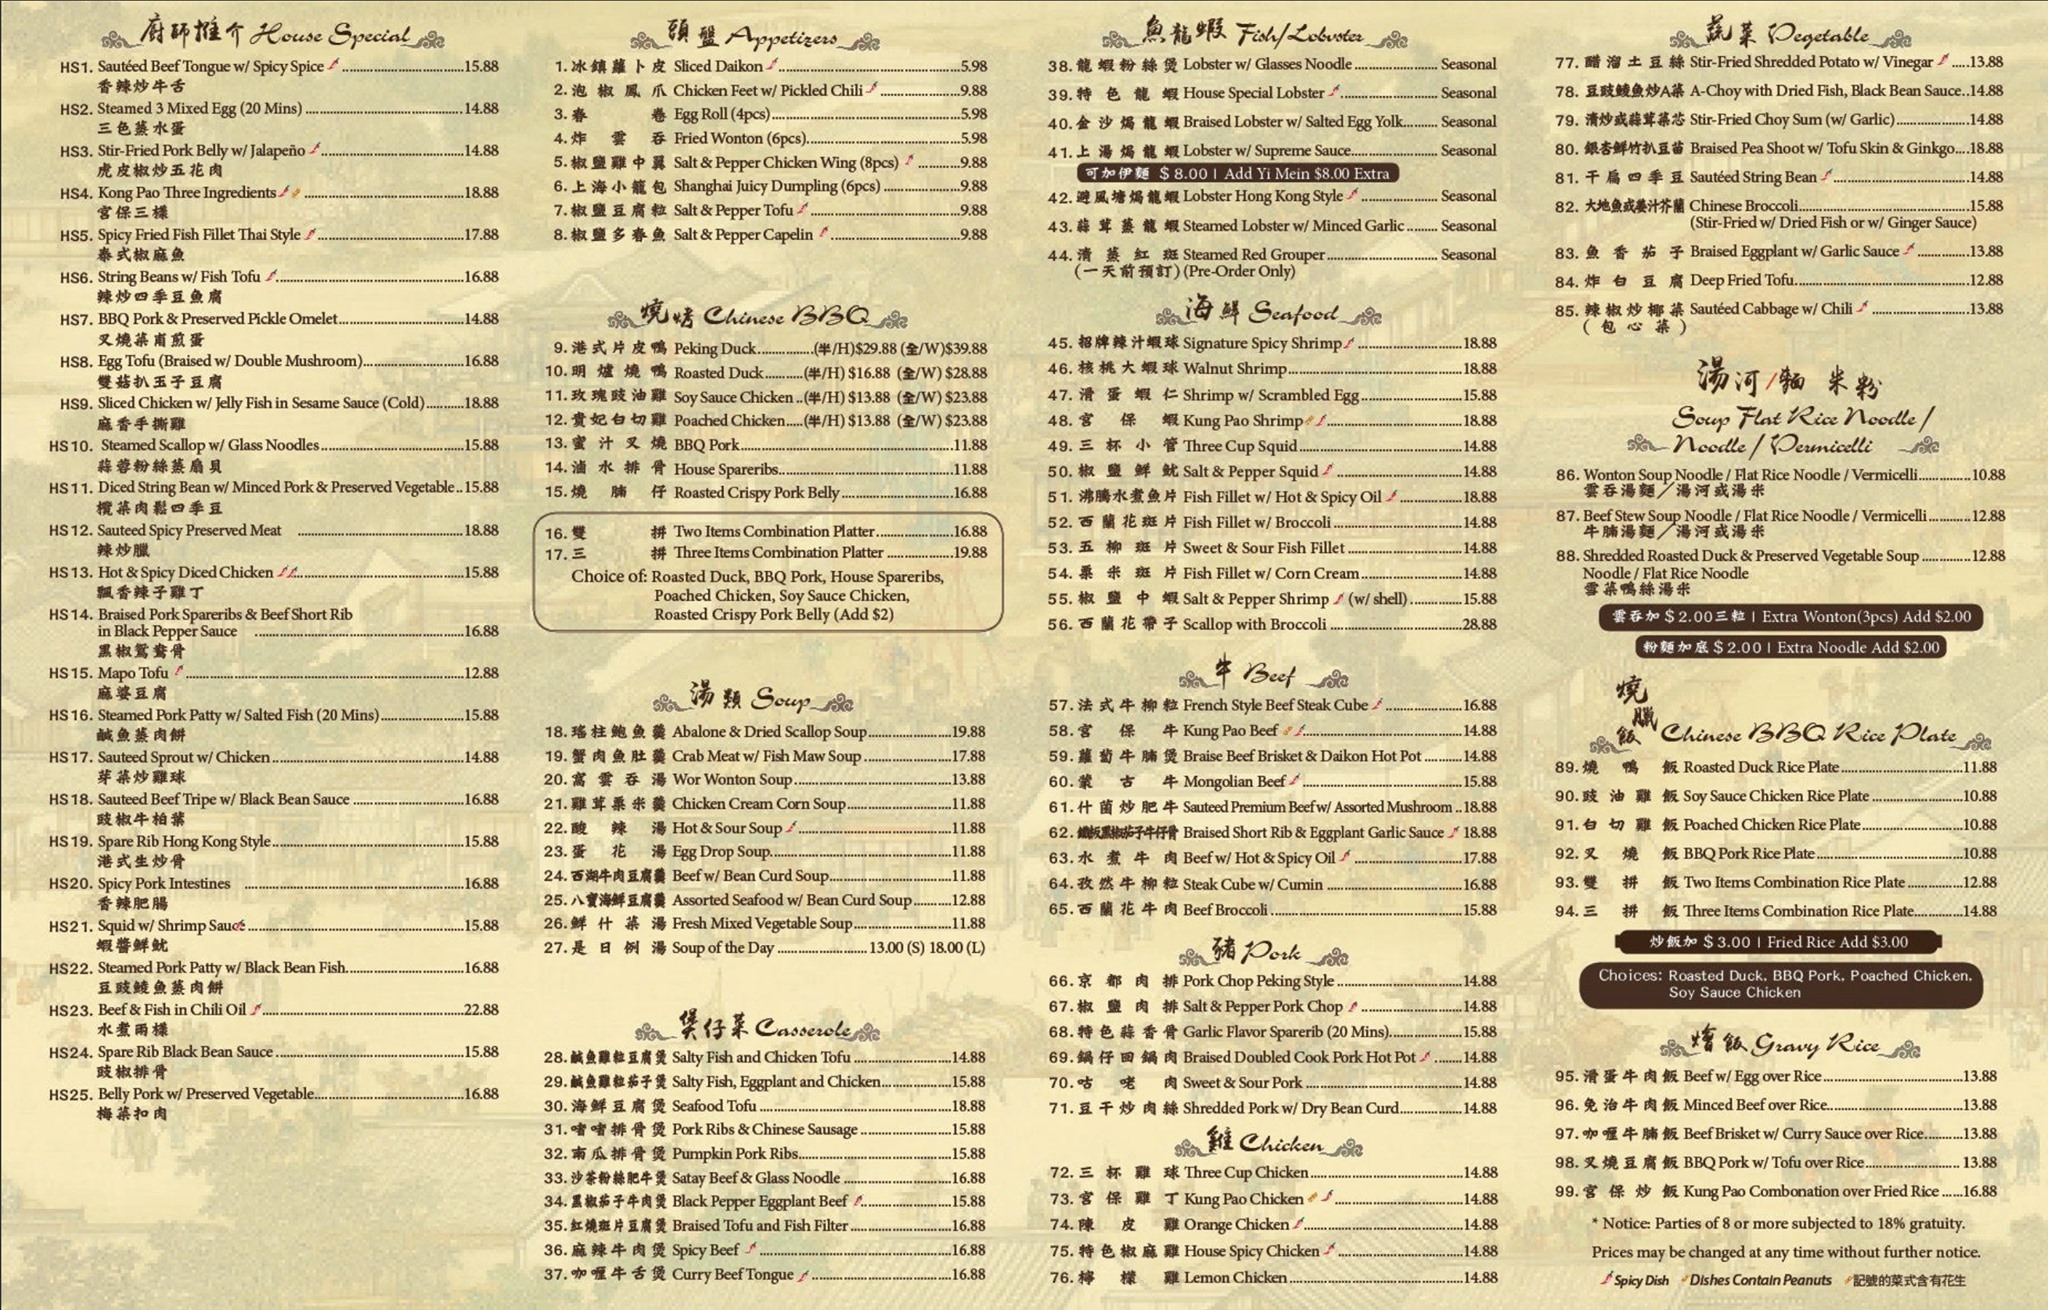 廚師推介 House Special
HS1. Sautéed Beef Tongue w/ Spicy Spice 15.88
香辣炒牛舌
HS2. Steamed 3 Mixed Egg (20 Mins) 14.88
三色蒸水蛋
HS3. Stir-Fried Pork Belly w/ Jalapeño 14.88
虎皮椒炒五花肉
HS4. Kong Pao Three Ingredients 18.88
宮保三樣
HS5. Spicy Fried Fish Fillet Thai Style 17.88
泰式椒麻魚
HS6. String Beans w/ Fish Tofu 16.88
辣炒四季豆魚腐
HS7. BBQ Pork & Preserved Pickle Omelet 14.88
叉燒菜甫煎蛋
HS8. Egg Tofu (Braised w/ Double Mushroom) 16.88
雙菇扒玉子豆腐
HS9. Sliced Chicken w/ Jelly Fish in Sesame Sauce (Cold) 18.88
麻香手撕雞
HS10. Steamed Scallop w/ Glass Noodles 15.88
蒜蓉粉絲蒸扇貝
HS11. Diced String Bean w/ Minced Pork & Preserved Vegetable 15.88
欖菜肉鬆四季豆
HS12. Sauteed Spicy Preserved Meat 18.88
辣炒臘
HS13. Hot & Spicy Diced Chicken 15.88
飄香辣子雞丁
HS14. Braised Pork Spareribs & Beef Short Rib
in Black Pepper Sauce 16.88
黑椒鴛鴦骨
HS15. Mapo Tofu 12.88
麻婆豆腐
HS16. Steamed Pork Patty w/ Salted Fish (20 Mins) 15.88
鹹魚蒸肉餅
HS17. Sauteed Sprout w/ Chicken 14.88
芽菜炒雞球
HS18. Sauteed Beef Tripe w/ Black Bean Sauce 16.88
豉椒牛柏葉
HS19. Spare Rib Hong Kong Style 15.88
港式生炒骨
HS20. Spicy Pork Intestines 16.88
香辣肥腸
HS21. Squid w/ Shrimp Sauce 15.88
蝦醬鮮魷
HS22. Steamed Pork Patty w/ Black Bean Fish 16.88
豆豉鯪魚蒸肉餅
HS23. Beef & Fish in Chili Oil 22.88
水煮兩樣
HS24. Spare Rib Black Bean Sauce 15.88
豉椒排骨
HS25. Belly Pork w/ Preserved Vegetable 16.88
梅菜扣肉
頭盤 Appetizers
1. 冰鎮蘿卜皮 Sliced Daikon 5.98
2. 泡椒鳳爪 Chicken Feet w/ Pickled Chili 9.88
3. 春卷 Egg Roll (4pcs) 5.98
4. 炸雲吞 Fried Wonton (6pcs) 5.98
5. 椒鹽雞中翼 Salt & Pepper Chicken Wing (8pcs) 9.88
6. 上海小籠包 Shanghai Juicy Dumpling (6pcs) 9.88
7. 椒鹽豆腐粒 Salt & Pepper Tofu 9.88
8. 椒鹽多春魚 Salt & Pepper Capelin 9.88
燒烤 Chinese BBQ
9. 港式片皮鴨 Peking Duck (半/H)$29.88 (全/W)$39.88
10. 明爐燒鴨 Roasted Duck (半/H) $16.88 (全/W) $28.88
11. 玫瑰豉油雞 Soy Sauce Chicken (半/H) $13.88 (全/W) $23.88
12. 貴妃白切雞 Poached Chicken (半/H) $13.88 (全/W) $23.88
13. 蜜汁叉燒 BBQ Pork 11.88
14. 滷水排骨 House Spareribs 11.88
15. 燒腩仔 Roasted Crispy Pork Belly 16.88
16. 雙拼 Two Items Combination Platter 16.88
17. 三拼 Three Items Combination Platter 19.88
Choice of: Roasted Duck, BBQ Pork, House Spareribs,
Poached Chicken, Soy Sauce Chicken,
Roasted Crispy Pork Belly (Add $2)
湯類 Soup
18. 瑤柱鮑魚羹 Abalone & Dried Scallop Soup 19.88
19. 蟹肉魚肚羹 Crab Meat w/ Fish Maw Soup 17.88
20. 窩雲吞湯 Wor Wonton Soup 13.88
21. 雞茸粟米羹 Chicken Cream Corn Soup 11.88
22. 酸辣湯 Hot & Sour Soup 11.88
23. 蛋花湯 Egg Drop Soup 11.88
24. 西湖牛肉豆腐羹 Beef w/ Bean Curd Soup 11.88
25. 八寶海鮮豆腐羹 Assorted Seafood w/ Bean Curd Soup 12.88
26. 鮮什菜湯 Fresh Mixed Vegetable Soup 11.88
27. 是日例湯 Soup of the Day 13.00 (S) 18.00 (L)
煲仔菜 Casserole
28. 鹹魚雞粒豆腐煲 Salty Fish and Chicken Tofu 14.88
29. 鹹魚雞粒茄子煲 Salty Fish, Eggplant and Chicken 15.88
30. 海鮮豆腐煲 Seafood Tofu 18.88
31. 啫啫排骨煲 Pork Ribs & Chinese Sausage 15.88
32. 南瓜排骨煲 Pumpkin Pork Ribs 15.88
33. 沙茶粉絲肥牛煲 Satay Beef & Glass Noodle 16.88
34. 黑椒茄子牛肉煲 Black Pepper Eggplant Beef 15.88
35. 紅燒斑片豆腐煲 Braised Tofu and Fish Filter 16.88
36. 麻辣牛肉煲 Spicy Beef 16.88
37. 咖喱牛舌煲 Curry Beef Tongue 16.88
魚龍蝦 Fish/Lobvster
38. 龍蝦粉絲煲 Lobster w/ Glasses Noodle Seasonal
39. 特色龍蝦 House Special Lobster Seasonal
40. 金沙焗龍蝦 Braised Lobster w/ Salted Egg Yolk Seasonal
41. 上湯焗龍蝦 Lobster w/ Supreme Sauce Seasonal
可加伊麵 $8.00 | Add Yi Mein $8.00 Extra
42. 避風塘焗龍蝦 Lobster Hong Kong Style Seasonal
43. 蒜茸蒸龍蝦 Steamed Lobster w/ Minced Garlic Seasonal
44. 清蒸紅斑 Steamed Red Grouper Seasonal
(一天前預訂) (Pre-Order Only)
海鮮 Seafood
45. 招牌辣汁蝦球 Signature Spicy Shrimp 18.88
46. 核桃大蝦球 Walnut Shrimp 18.88
47. 滑蛋蝦仁 Shrimp w/ Scrambled Egg 15.88
48. 宮保蝦 Kung Pao Shrimp 18.88
49. 三杯小管 Three Cup Squid 14.88
50. 椒鹽鮮魷 Salt & Pepper Squid 14.88
51. 沸騰水煮魚片 Fish Fillet w/ Hot & Spicy Oil 18.88
52. 西蘭花斑片 Fish Fillet w/ Broccoli 14.88
53. 五柳斑片 Sweet & Sour Fish Fillet 14.88
54. 粟米斑片 Fish Fillet w/ Corn Cream 14.88
55. 椒鹽中蝦 Salt & Pepper Shrimp (w/ shell) 15.88
56. 西蘭花帶子 Scallop with Broccoli 28.88
牛 Beef
57. 法式牛柳粒 French Style Beef Steak Cube 16.88
58. 宮保牛 Kung Pao Beef 14.88
59. 蘿蔔牛腩煲 Braise Beef Brisket & Daikon Hot Pot 14.88
60. 蒙古牛 Mongolian Beef 15.88
61. 什菌炒肥牛 Sauteed Premium Beef w/ Assorted Mushroom 18.88
62. 鐵板黑椒茄子牛仔骨 Braised Short Rib & Eggplant Garlic Sauce 18.88
63. 水煮牛肉 Beef w/ Hot & Spicy Oil 17.88
64. 孜然牛柳粒 Steak Cube w/ Cumin 16.88
65. 西蘭花牛肉 Beef Broccoli 15.88
豬 Pork
66. 京都肉排 Pork Chop Peking Style 14.88
67. 椒鹽肉排 Salt & Pepper Pork Chop 14.88
68. 特色蒜香骨 Garlic Flavor Sparerib (20 Mins) 15.88
69. 鍋仔回鍋肉 Braised Doubled Cook Pork Hot Pot 14.88
70. 咕咾肉 Sweet & Sour Pork 14.88
71. 豆干炒肉絲 Shredded Pork w/ Dry Bean Curd 14.88
雞 Chicken
72. 三杯雞球 Three Cup Chicken 14.88
73. 宮保雞丁 Kung Pao Chicken 14.88
74. 陳皮雞 Orange Chicken 14.88
75. 特色椒麻雞 House Spicy Chicken 14.88
76. 檸檬雞 Lemon Chicken 14.88
蔬菜 Vegetable
77. 醋溜土豆絲 Stir-Fried Shredded Potato w/ Vinegar 13.88
78. 豆豉鯪魚炒A菜 A-Choy with Dried Fish, Black Bean Sauce 14.88
79. 清炒或蒜茸菜芯 Stir-Fried Choy Sum (w/ Garlic) 14.88
80. 銀杏鮮竹扒豆苗 Braised Pea Shoot w/ Tofu Skin & Ginkgo 14.88
81. 干扁四季豆 Sautéed String Bean 14.88
82. 大地魚或姜汁芥蘭 Chinese Broccoli 15.88
(Stir-Fried w/ Dried Fish or w/ Ginger Sauce)
83. 魚香茄子 Braised Eggplant w/ Garlic Sauce 13.88
84. 炸白豆腐 Deep Fried Tofu 12.88
85. 辣椒炒椰菜 Sautéed Cabbage w/ Chili 13.88
(包心菜)
湯河/麵 米粉
Soup Flat Rice Noodle/
Noodle/Vermicelli
86. Wonton Soup Noodle / Flat Rice Noodle / Vermicelli 10.88
雲吞湯麵／湯河或湯米
87. Beef Stew Soup Noodle / Flat Rice Noodle / Vermicelli 12.88
牛腩湯麵／湯河或湯米
88. Shredded Roasted Duck & Preserved Vegetable Soup 12.88
Noodle / Flat Rice Noodle
雪菜鴨絲湯米
雲吞加 $2.00三粒 | Extra Wonton(3pcs) Add $2.00
粉麵加底 $2.00 | Extra Noodle Add $2.00
燒臘飯 Chinese BBQ Rice Plate
89. 燒鴨飯 Roasted Duck Rice Plate 11.88
90. 豉油雞飯 Soy Sauce Chicken Rice Plate 10.88
91. 白切雞飯 Poached Chicken Rice Plate 10.88
92. 叉燒飯 BBQ Pork Rice Plate 10.88
93. 雙拼飯 Two Items Combination Rice Plate 12.88
94. 三拼飯 Three Items Combination Rice Plate 14.88
炒飯加 $3.00 | Fried Rice Add $3.00
Choices: Roasted Duck, BBQ Pork, Poached Chicken,
Soy Sauce Chicken
燴飯 Gravy Rice
95. 滑蛋牛肉飯 Beef w/ Egg over Rice 13.88
96. 免治牛肉飯 Minced Beef over Rice 13.88
97. 咖喱牛腩飯 Beef Brisket w/ Curry Sauce over Rice 13.88
98. 叉燒豆腐飯 BBQ Pork w/ Tofu over Rice 13.88
99. 宮保炒飯 Kung Pao Combonation over Fried Rice 16.88
* Notice: Parties of 8 or more subjected to 18% gratuity.
Prices may be changed at any time without further notice.
Spicy Dish Dishes Contain Peanuts 記號的菜式含有花生